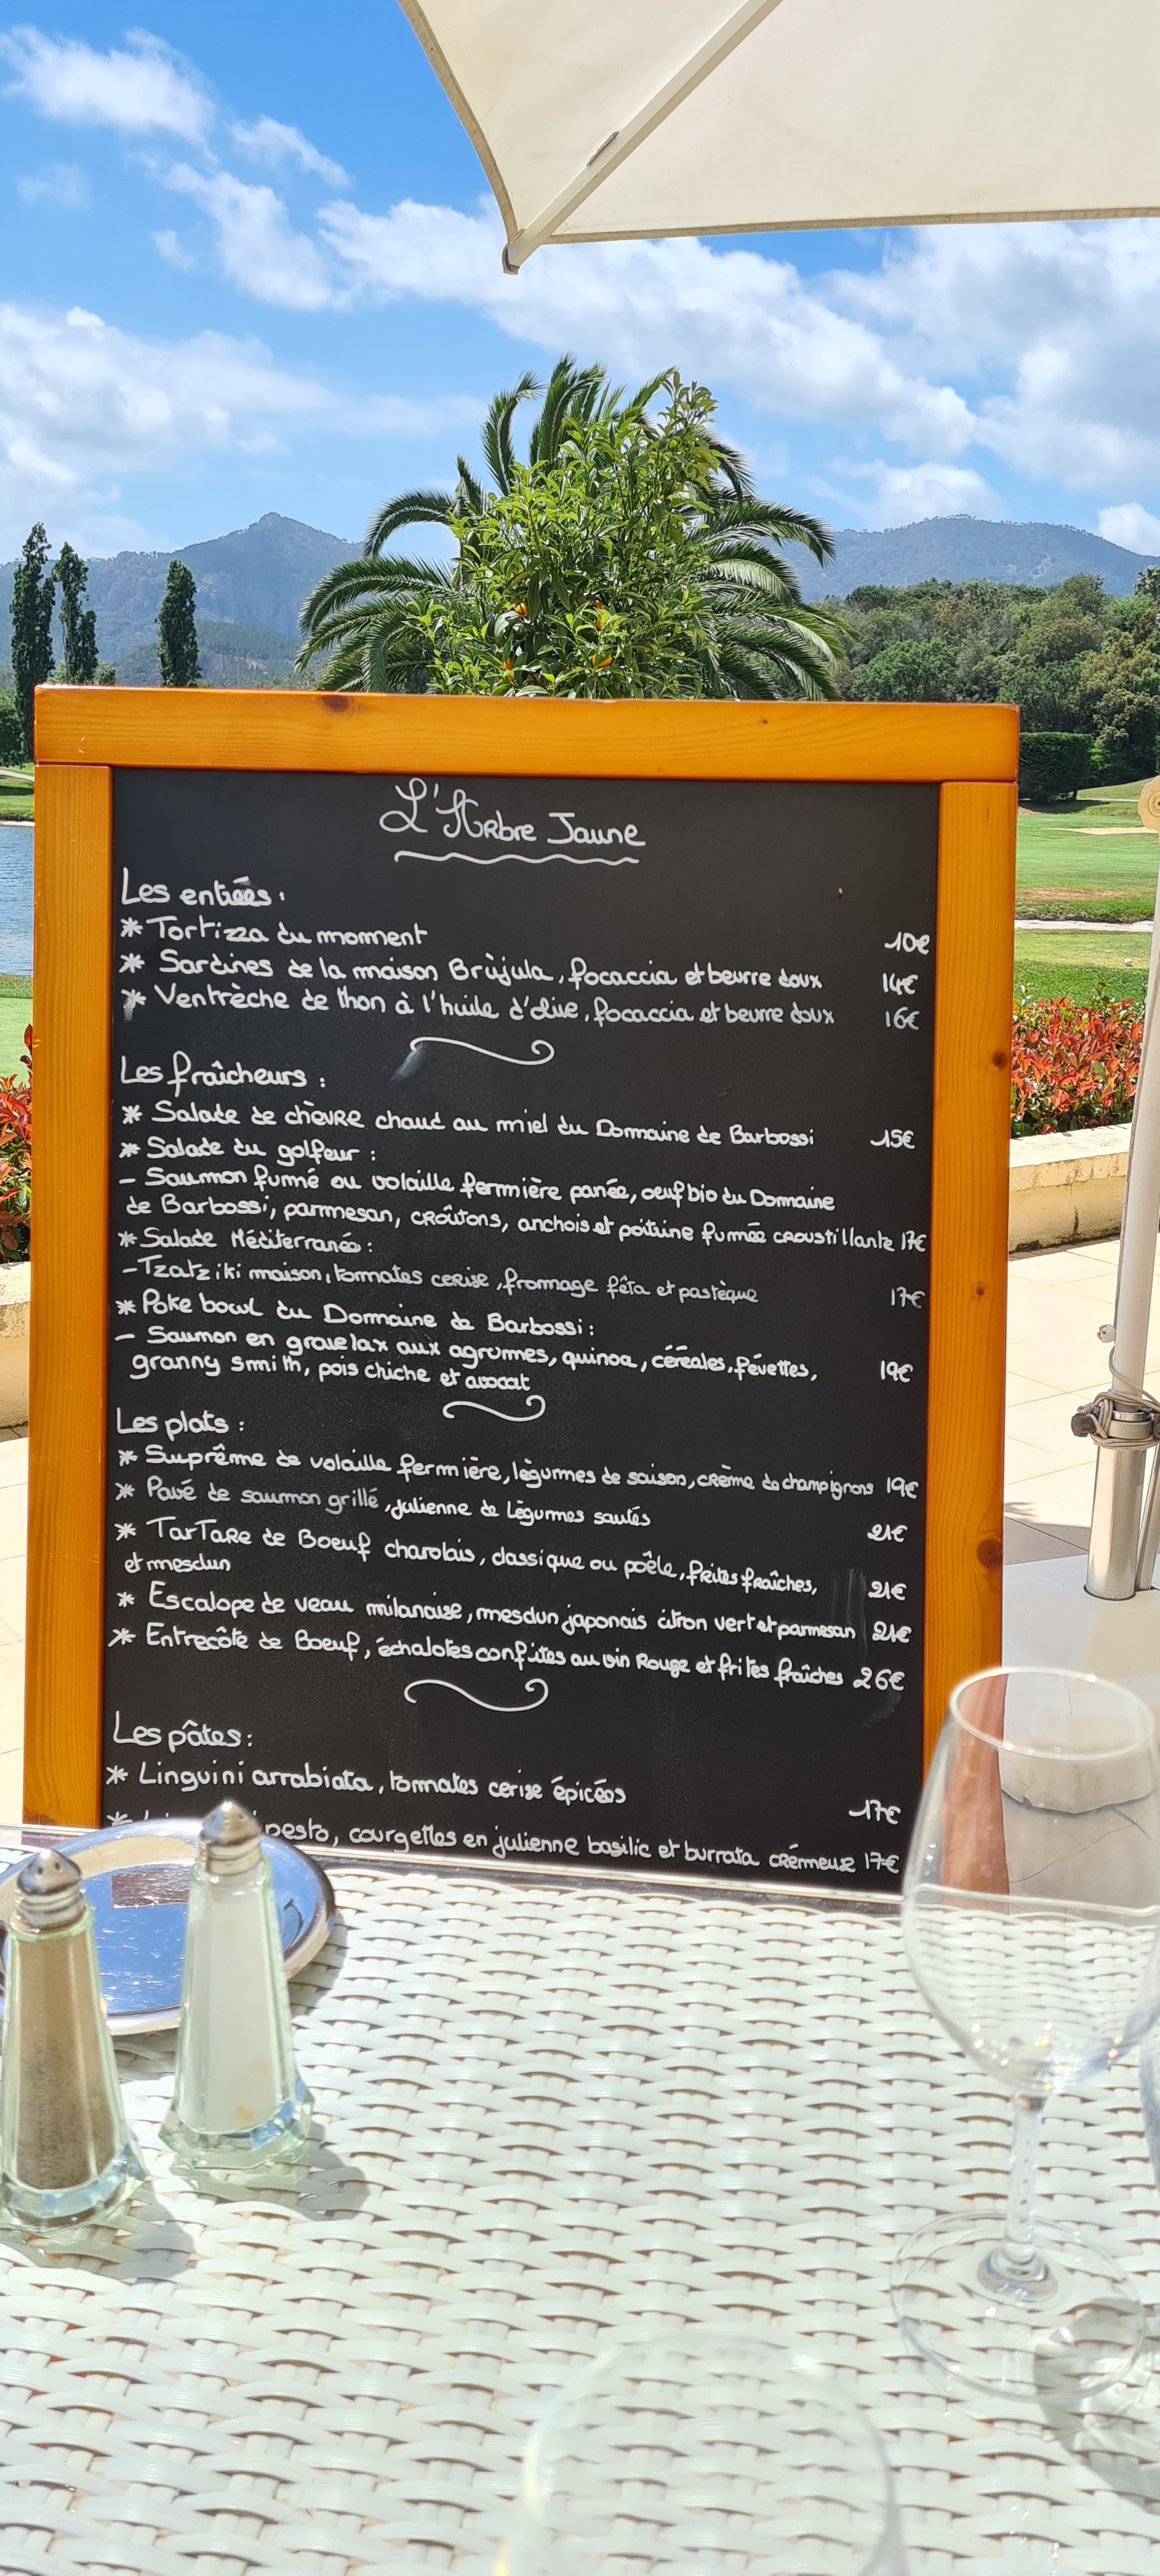 L'Arbre Jaune
Les entrées :
* Tortizza du moment 10€
* Sardines de la maison Brùjula, focaccia et beurre doux 14€
* Ventrèche de thon à l'huile d'olive, focaccia et beurre doux 16€
Les fraîcheurs :
* Salade de chèvre chaud au miel du Domaine de Barbossi 15€
* Salade du golfeur :
- Saumon fumé ou volaille fermière panée, oeuf bio du Domaine
de Barbossi, parmesan, croûtons, anchois et poitrine fumée croustillante 17€
* Salade Méditerranée :
- Tzatziki maison, tomates cerise, fromage fêta et pastèque 17€
* Poke bowl du Domaine de Barbossi :
- Saumon en gravelax aux agrumes, quinoa, céréales, févettes, 19€
granny smith, pois chiche et avocat
Les plats :
* Suprême de volaille fermière, légumes de saison, crème de champignons 19€
* Pavé de saumon grillé, julienne de légumes sautés 21€
* Tartare de Boeuf charolais, classique ou poêlé, frites fraîches, 21€
et mesclun
* Escalope de veau milanaise, mesclun japonais citron vert et parmesan 21€
* Entrecôte de Boeuf, échalotes confites au vin Rouge et frites fraîches 26€
Les pâtes :
* Linguini arrabiata, tomates cerise épicées 17€
* pesto, courgettes en julienne basilic et burrata crémeuse 17€